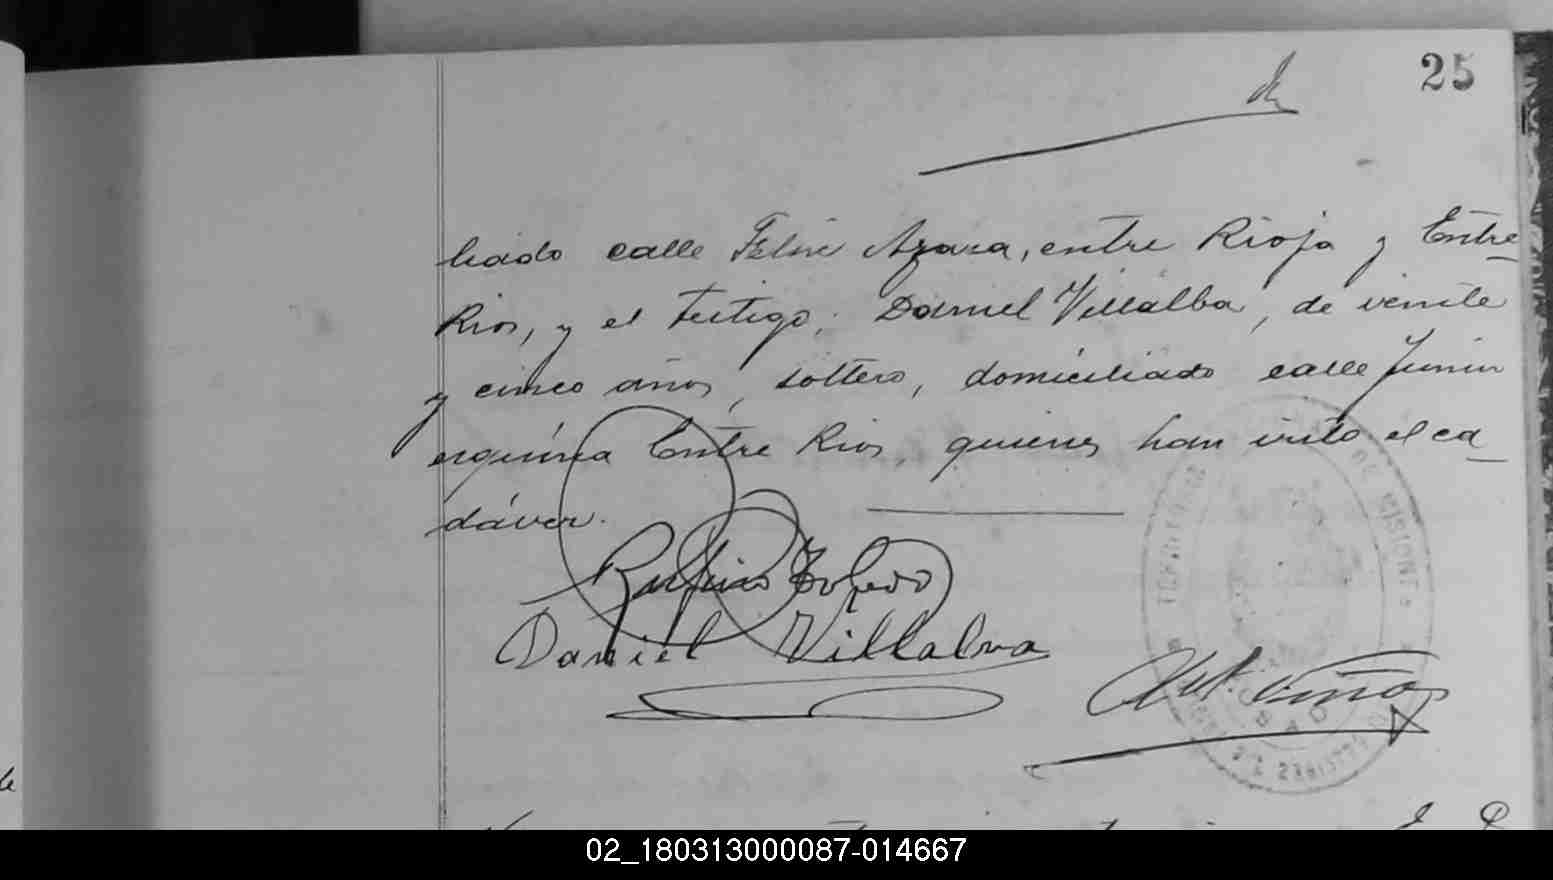 25
liado calle Felix Azara, entre Rioja y Entre
Rios, y el testigo, Daniel Villalba, de veinte
y cinco años, soltero, domiciliado calle Junin
esquina Entre Rios, quienes han visto el ca
dáver.
Rufino Toledo
Daniel Villalva
DE MISIONES
02_180313000087-014667